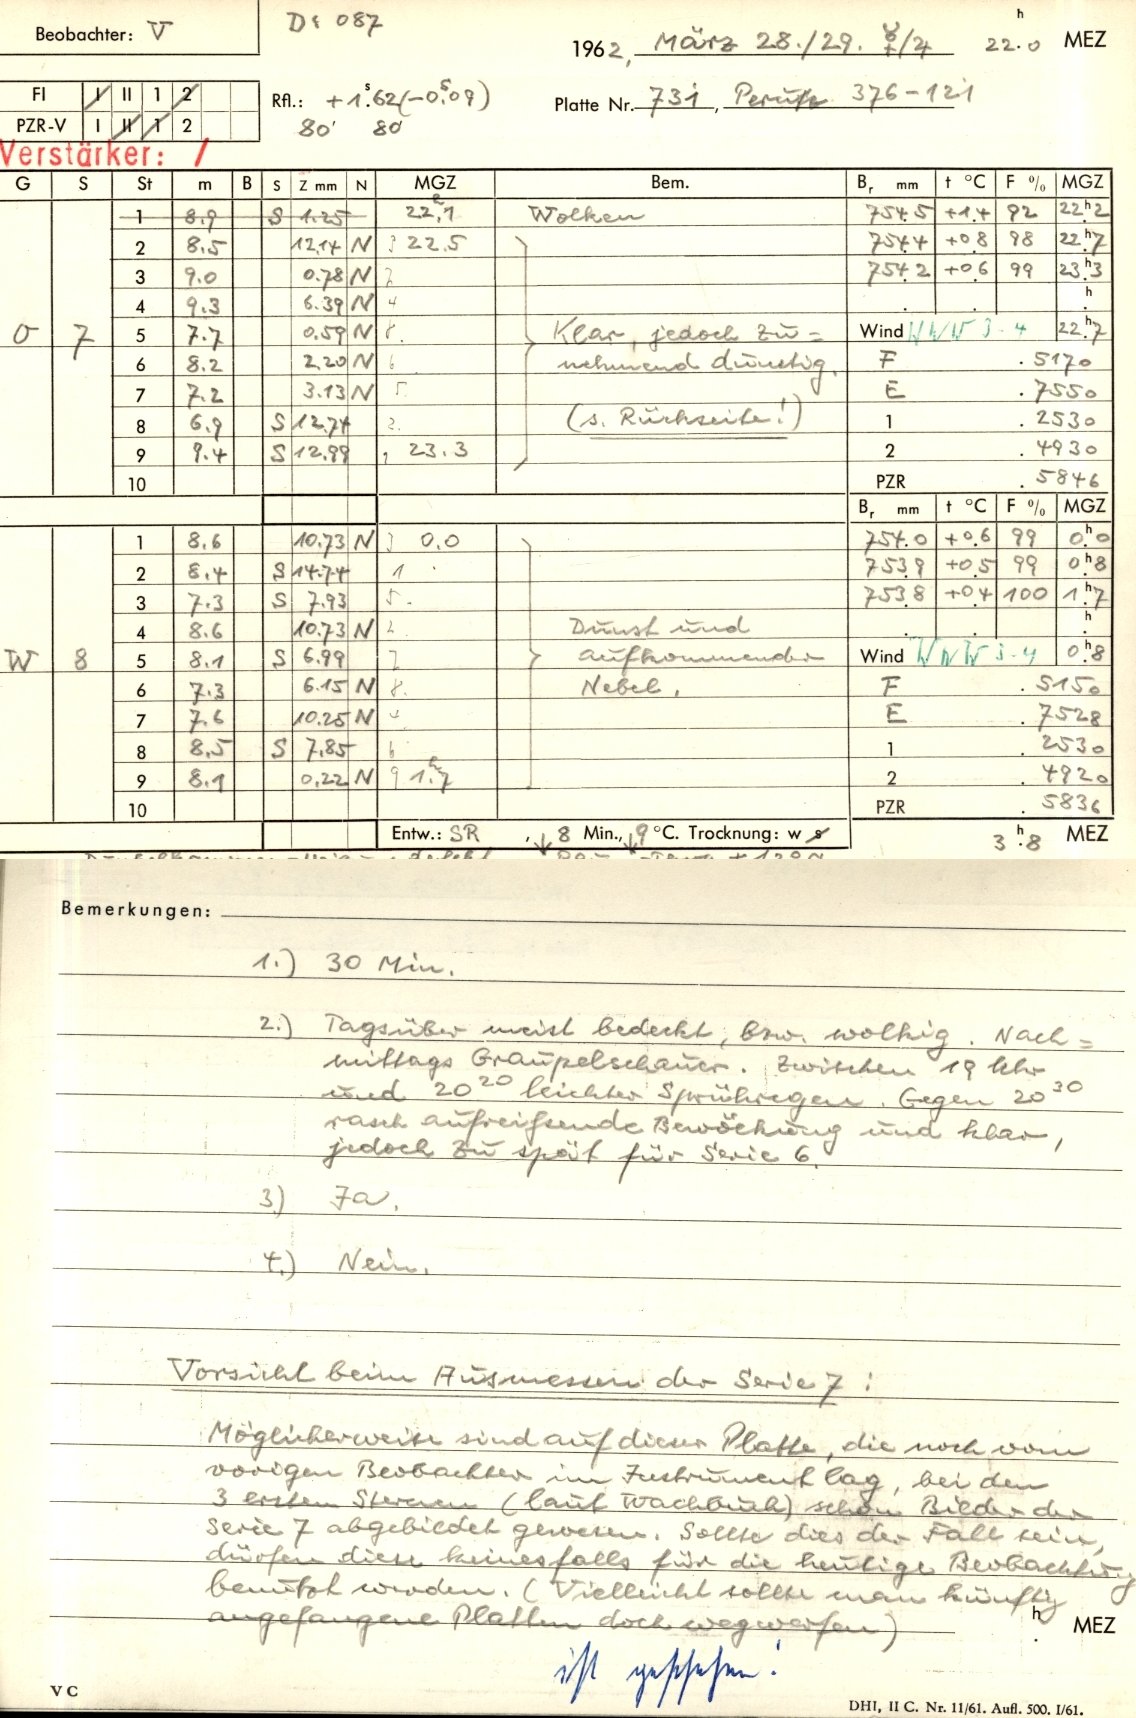 Beobachter: V
D: 087
1962, März 28./29. ☿/♃ 22.0 h MEZ
FI I II 1 2
PZR-V I II 1 2
Rfl.: +1.62 (-0.09)
80' 80
Platte Nr. 731, Perutz 376-121
Verstärker: /
G S St m B S Z mm N MGZ Bem. Br mm t °C F % MGZ
1 8.9 S 1.25 22.1 Wolken 754.5 +1.4 92 22h2
2 8.5 12.14 N 3 22.5 754.4 +0.8 98 22h7
3 9.0 0.78 N 754.2 +0.6 99 23h3
4 9.3 6.39 N 4 h
O 7 5 7.7 0.59 N 8. Klar, jedoch zu= Wind WNW 3-4 22h7
6 8.2 2.20 N 6 nehmend dunstig. F .5170
7 7.2 3.13 N 5. E .7550
8 6.9 S 12.74 2. (s. Rückseite!) 1 .2530
9 9.4 S 12.99 1 23.3 2 .4930
10 PZR .5846
Br mm t °C F % MGZ
1 8.6 10.73 N 3 0.0 754.0 +0.6 99 0h0
2 8.4 S 14.74 1 753.9 +0.5 99 0h8
3 7.3 S 7.93 5. 753.8 +0.4 100 1h7
4 8.6 10.73 N 2. Dunst und h
W 8 5 8.1 S 6.99 7 aufkommender Wind WNW 3-4 0h8
6 7.3 6.15 N 8. Nebel. F .5150
7 7.6 10.25 N 4 E .7528
8 8.5 S 7.85 6 1 .2530
9 8.1 0.22 N 9 1h7 2 .4920
10 PZR .5836
Entw.: SR , ↓8 Min., ↓9 °C. Trocknung: w s 3h8 MEZ
Bemerkungen:
1.) 30 Min.
2.) Tagsüber meist bedeckt, bzw. wolkig. Nach=
mittags Graupelschauer. Zwischen 19 Uhr
und 20 20 leichter Sprühregen. Gegen 20 30
rasch aufreißende Bewölkung und klar,
jedoch zu spät für Serie 6.
3.) Ja.
4.) Nein.
Vorsicht beim Ausmessen der Serie 7:
Möglicherweise sind auf dieser Platte, die noch vom
vorigen Beobachter im Instrument lag, bei den
3 ersten Sternen (laut Wachbuch) schon Bilder der
Serie 7 abgebildet gewesen. Sollte dies der Fall sein,
dürfen diese keinesfalls für die heutige Beobachtung
benutzt werden. (Vielleicht sollte man künftig
angefangene Platten doch wegwerfen)
h MEZ
ist geschehen!
VC
DHI, II C. Nr. 11/61. Aufl. 500. I/61.